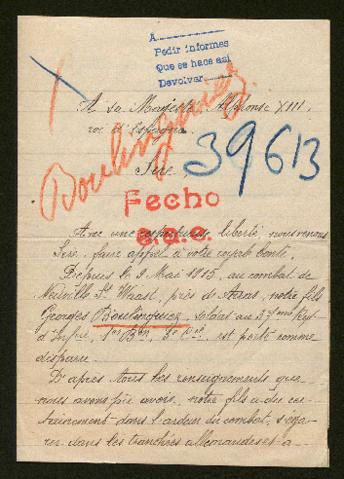 A
Pedir informes
Que se hace así
Devolver
A Sa Majesté Alphonse XIII,
roi d'Espagne.
Sire,
39613
Boulinguez
Fecho
Avec une respectueuse liberté, nous venons
Sire, faire appel à votre royale bonté.
Depuis le 9 Mai 1915, au combat de
Neuville St Waast, près de Arras, notre fils
Georges Boulinguiez, soldat au 37ème Régt
d'Infie, 1er Bon, 3e Cie, est porté comme
disparu.
D'après tous les renseignements que
nous avons pu avoir, notre fils a dû cer-
tainement dans l'ardeur du combat, s'éga-
rer dans les tranchées allemandes et a